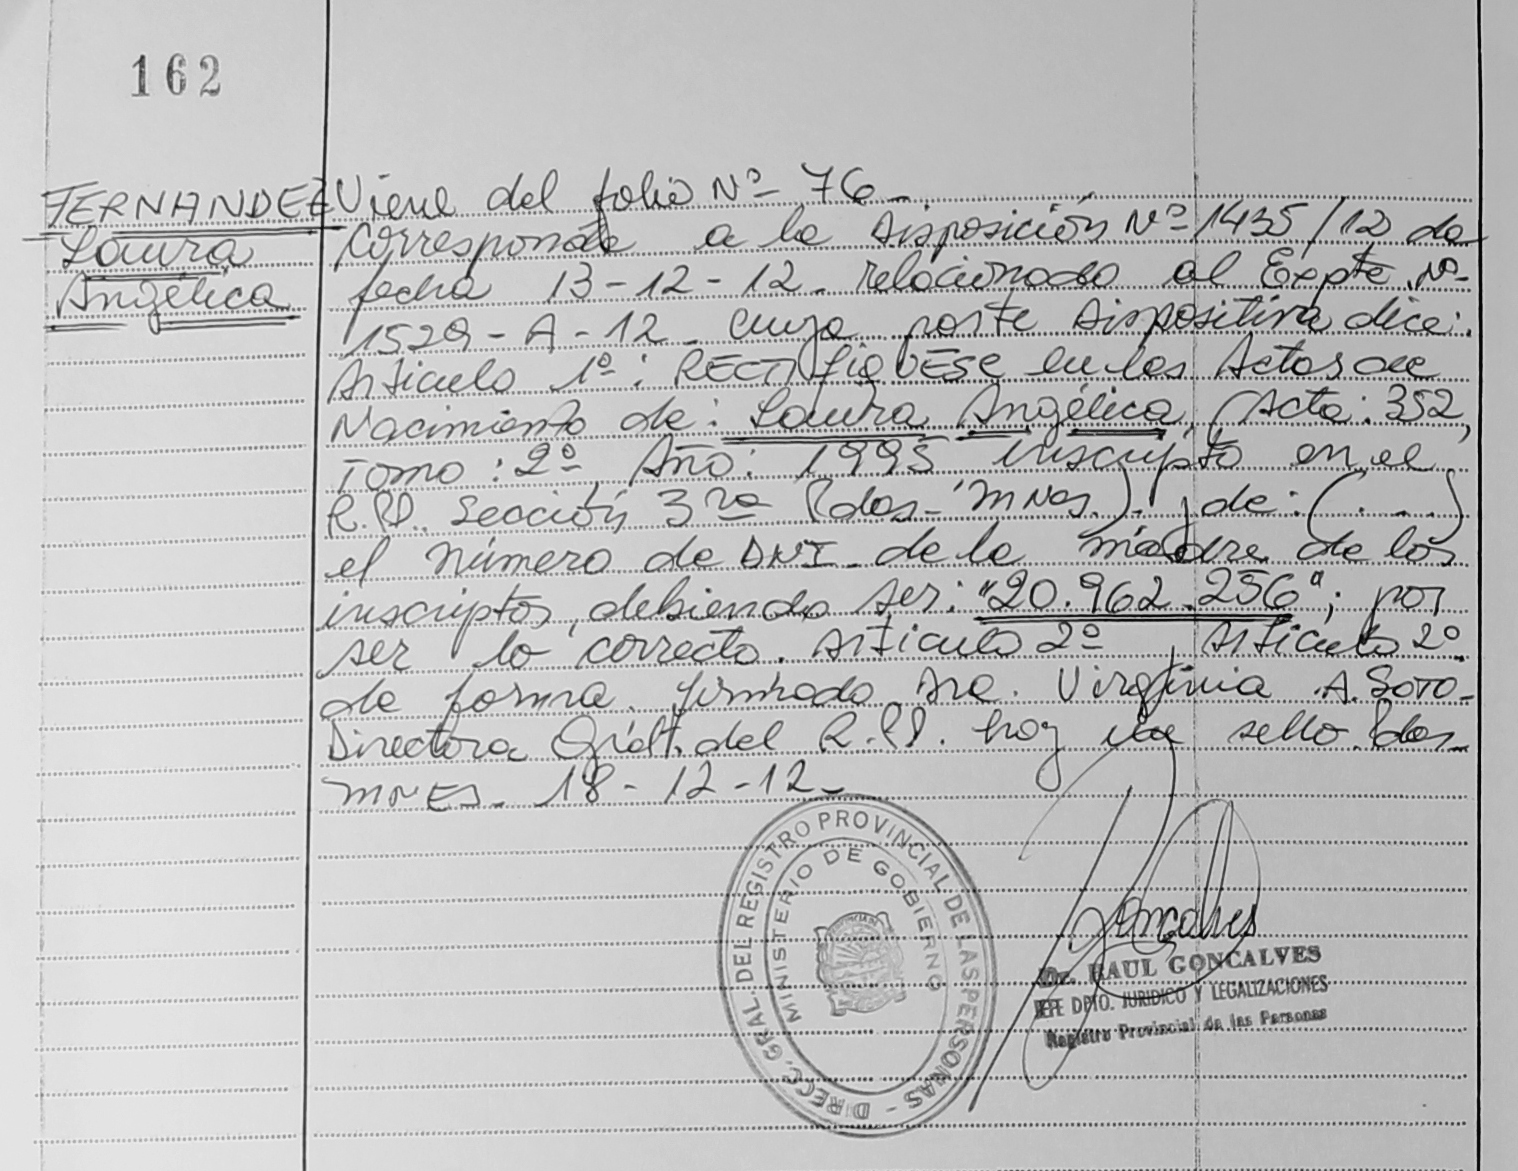 162
FERNANDEZ
Laura
Angélica
Viene del folio Nº 76_
Corresponde a la Disposición Nº 1435/12 de
fecha 13-12-12_ relacionado al Expte. Nº-
1529-A-12_ cuya parte Dispositiva dice:
Articulo 1º: RECTIFIQUESE en las Actas de
Nacimiento de: Laura Angélica, (Acta: 352,
Tomo: 2º, Año: 1995 inscripto en el
R.P.P. Sección 3ra Pdas-Mnes.), de: (...)
el número de DNI_ de la madre de los
inscriptos, debiendo ser: "20.962.256"; por
ser lo correcto. Articulo 2º Articulo 2º
de forma. firmado Dra. Virginia A. Soto-
Directora Gral. del R.P.P. hay un sello. Pdas_
MNES_ 18-12-12_
DIRECC. GRAL. DEL REGISTRO PROVINCIAL DE LAS PERSONAS -
MINISTERIO DE GOBIERNO
Goncalves
Dr. RAUL GONCALVES
JEFE DPTO. JURIDICO Y LEGALIZACIONES
Registro Provincial de las Personas